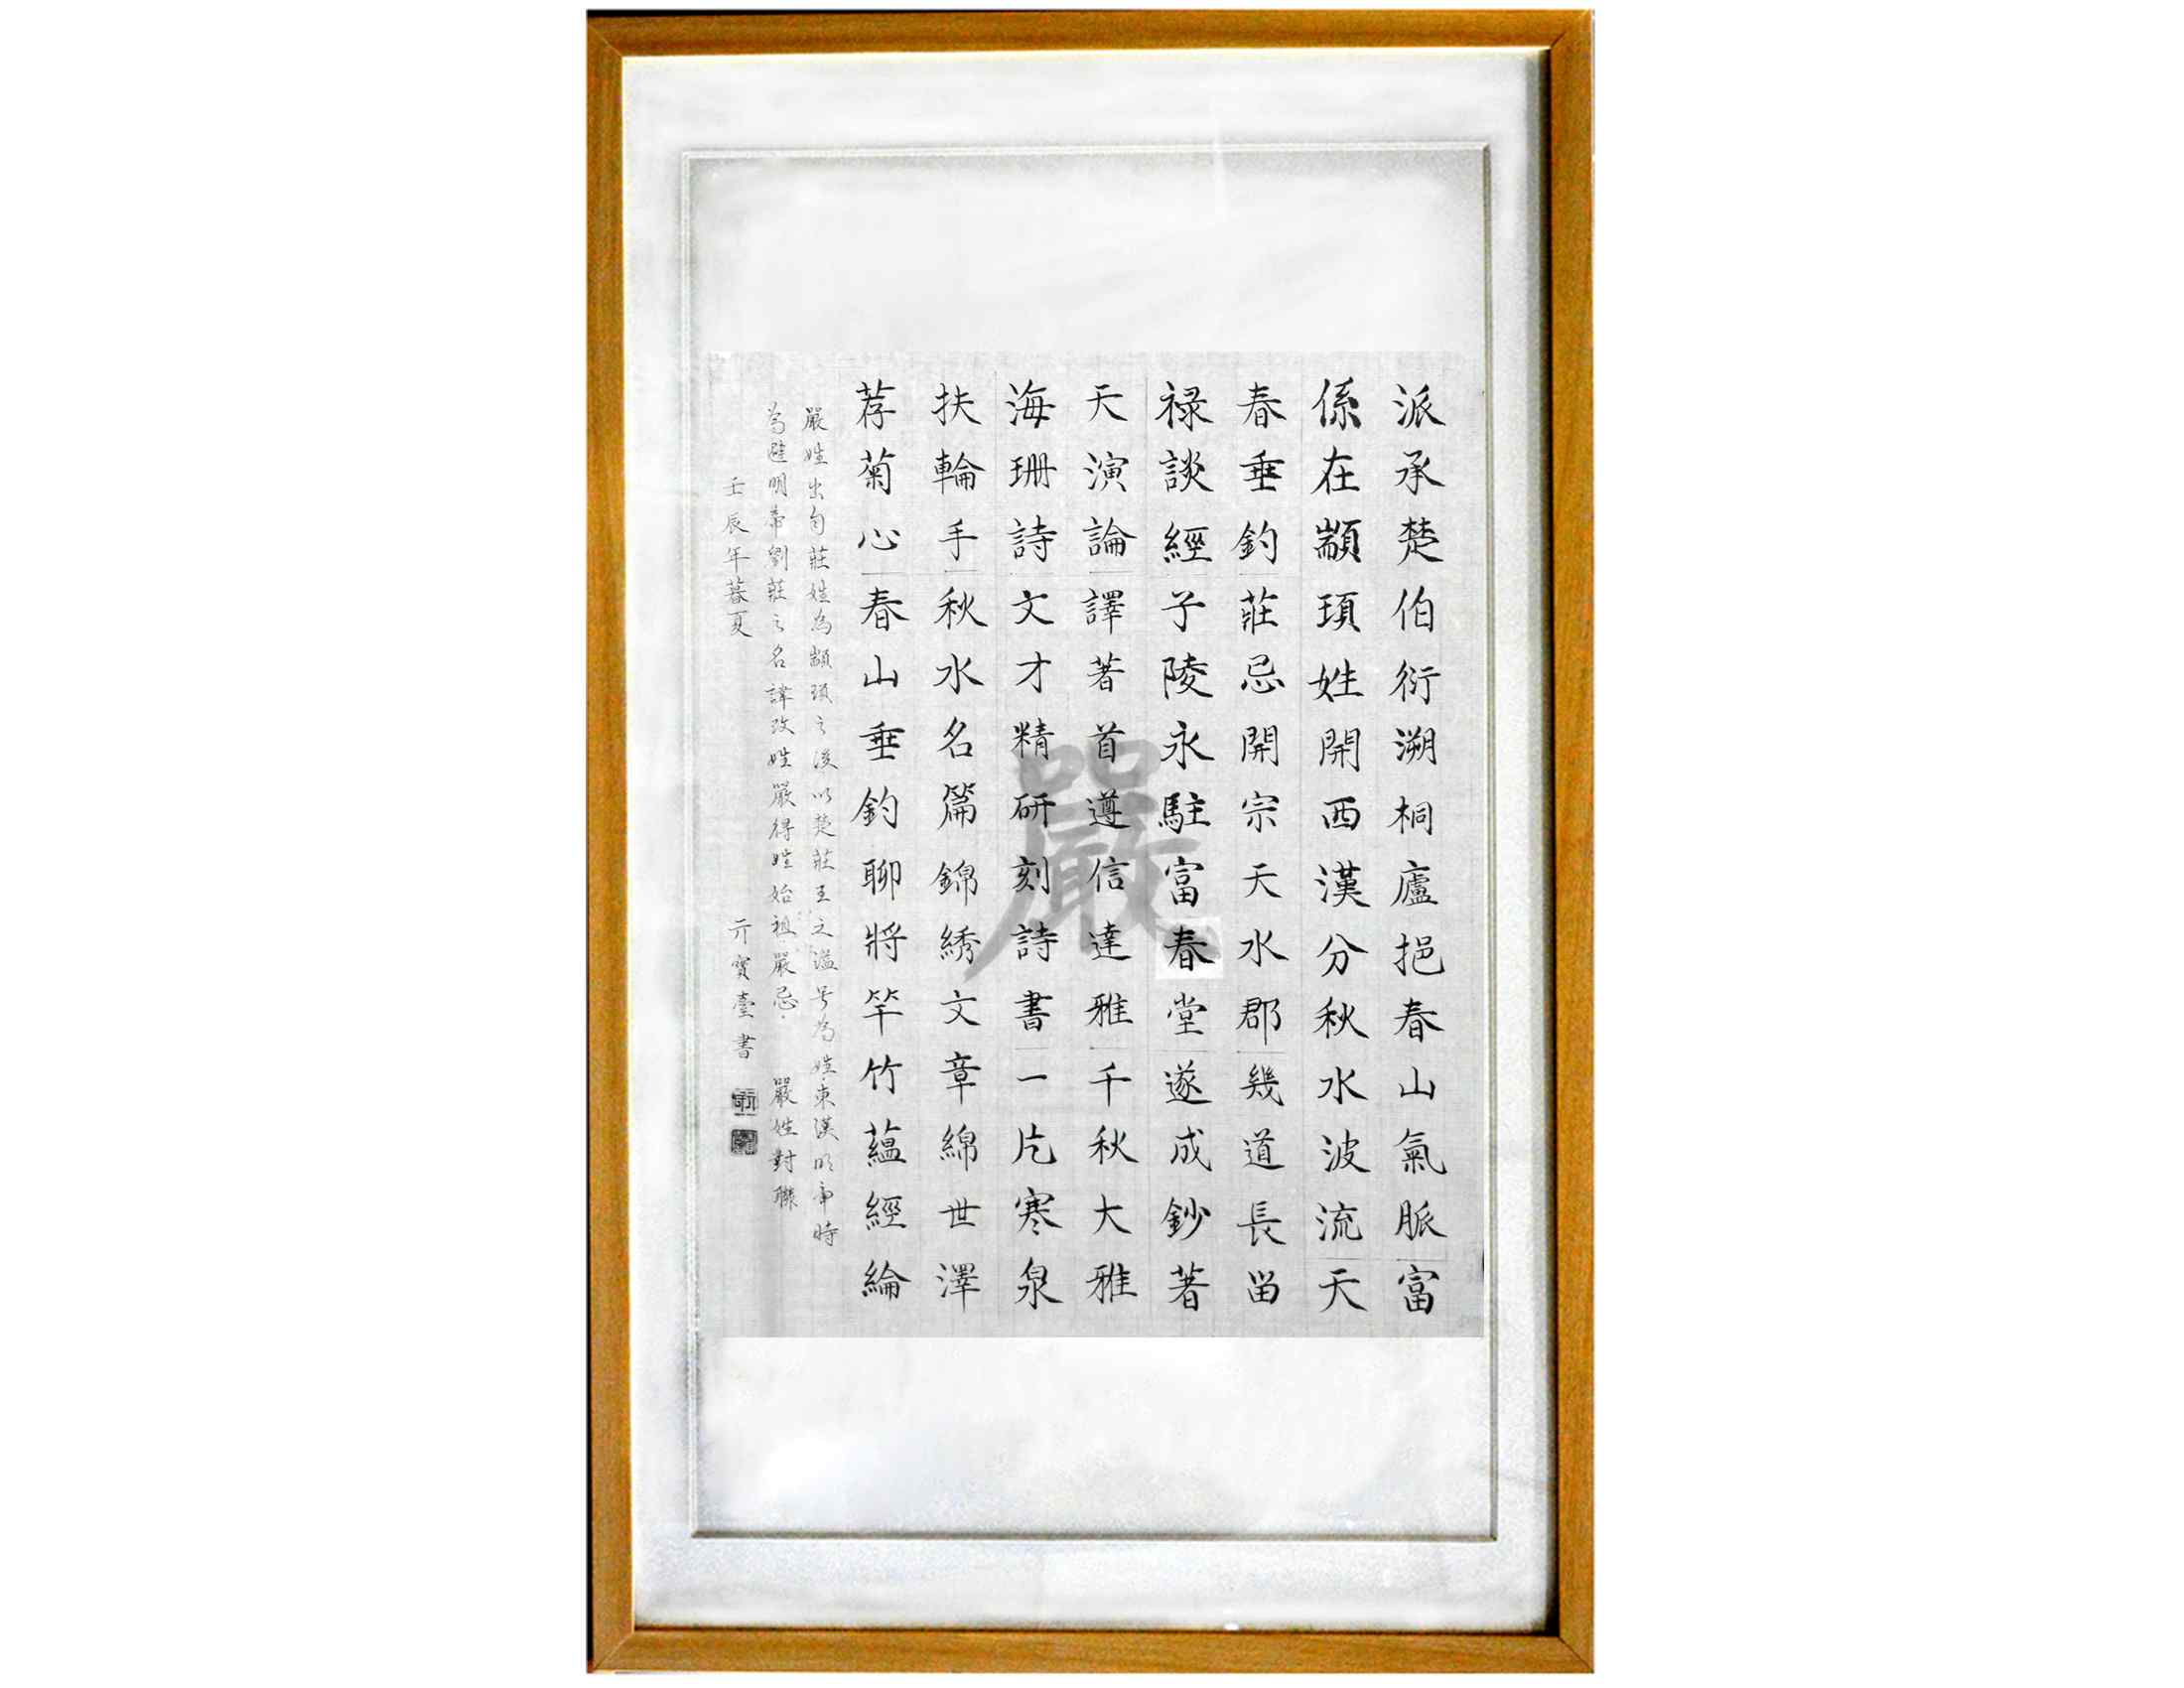 派承楚伯衍溯桐廬挹春山氣脈富
係在顓頊姓開西漢分秋水波流天
春垂釣莊忌開宗天水郡幾道長留
祿談經子陵永駐富春堂遂成鈔著
天演論譯著首遵信達雅千秋大雅
海珊詩文才精研刻詩書一片寒泉
扶輪手秋水名篇錦綉文章綿世澤
荐菊心春山垂釣聊將竿竹蘊經綸
嚴姓出自莊姓為顓頊之後以楚莊王之謚号為姓東漢明帝時
為避明帝劉莊之名諱改姓嚴得姓始祖嚴忌 嚴姓對聯
壬辰年暮夏 亓寶臺書
嚴